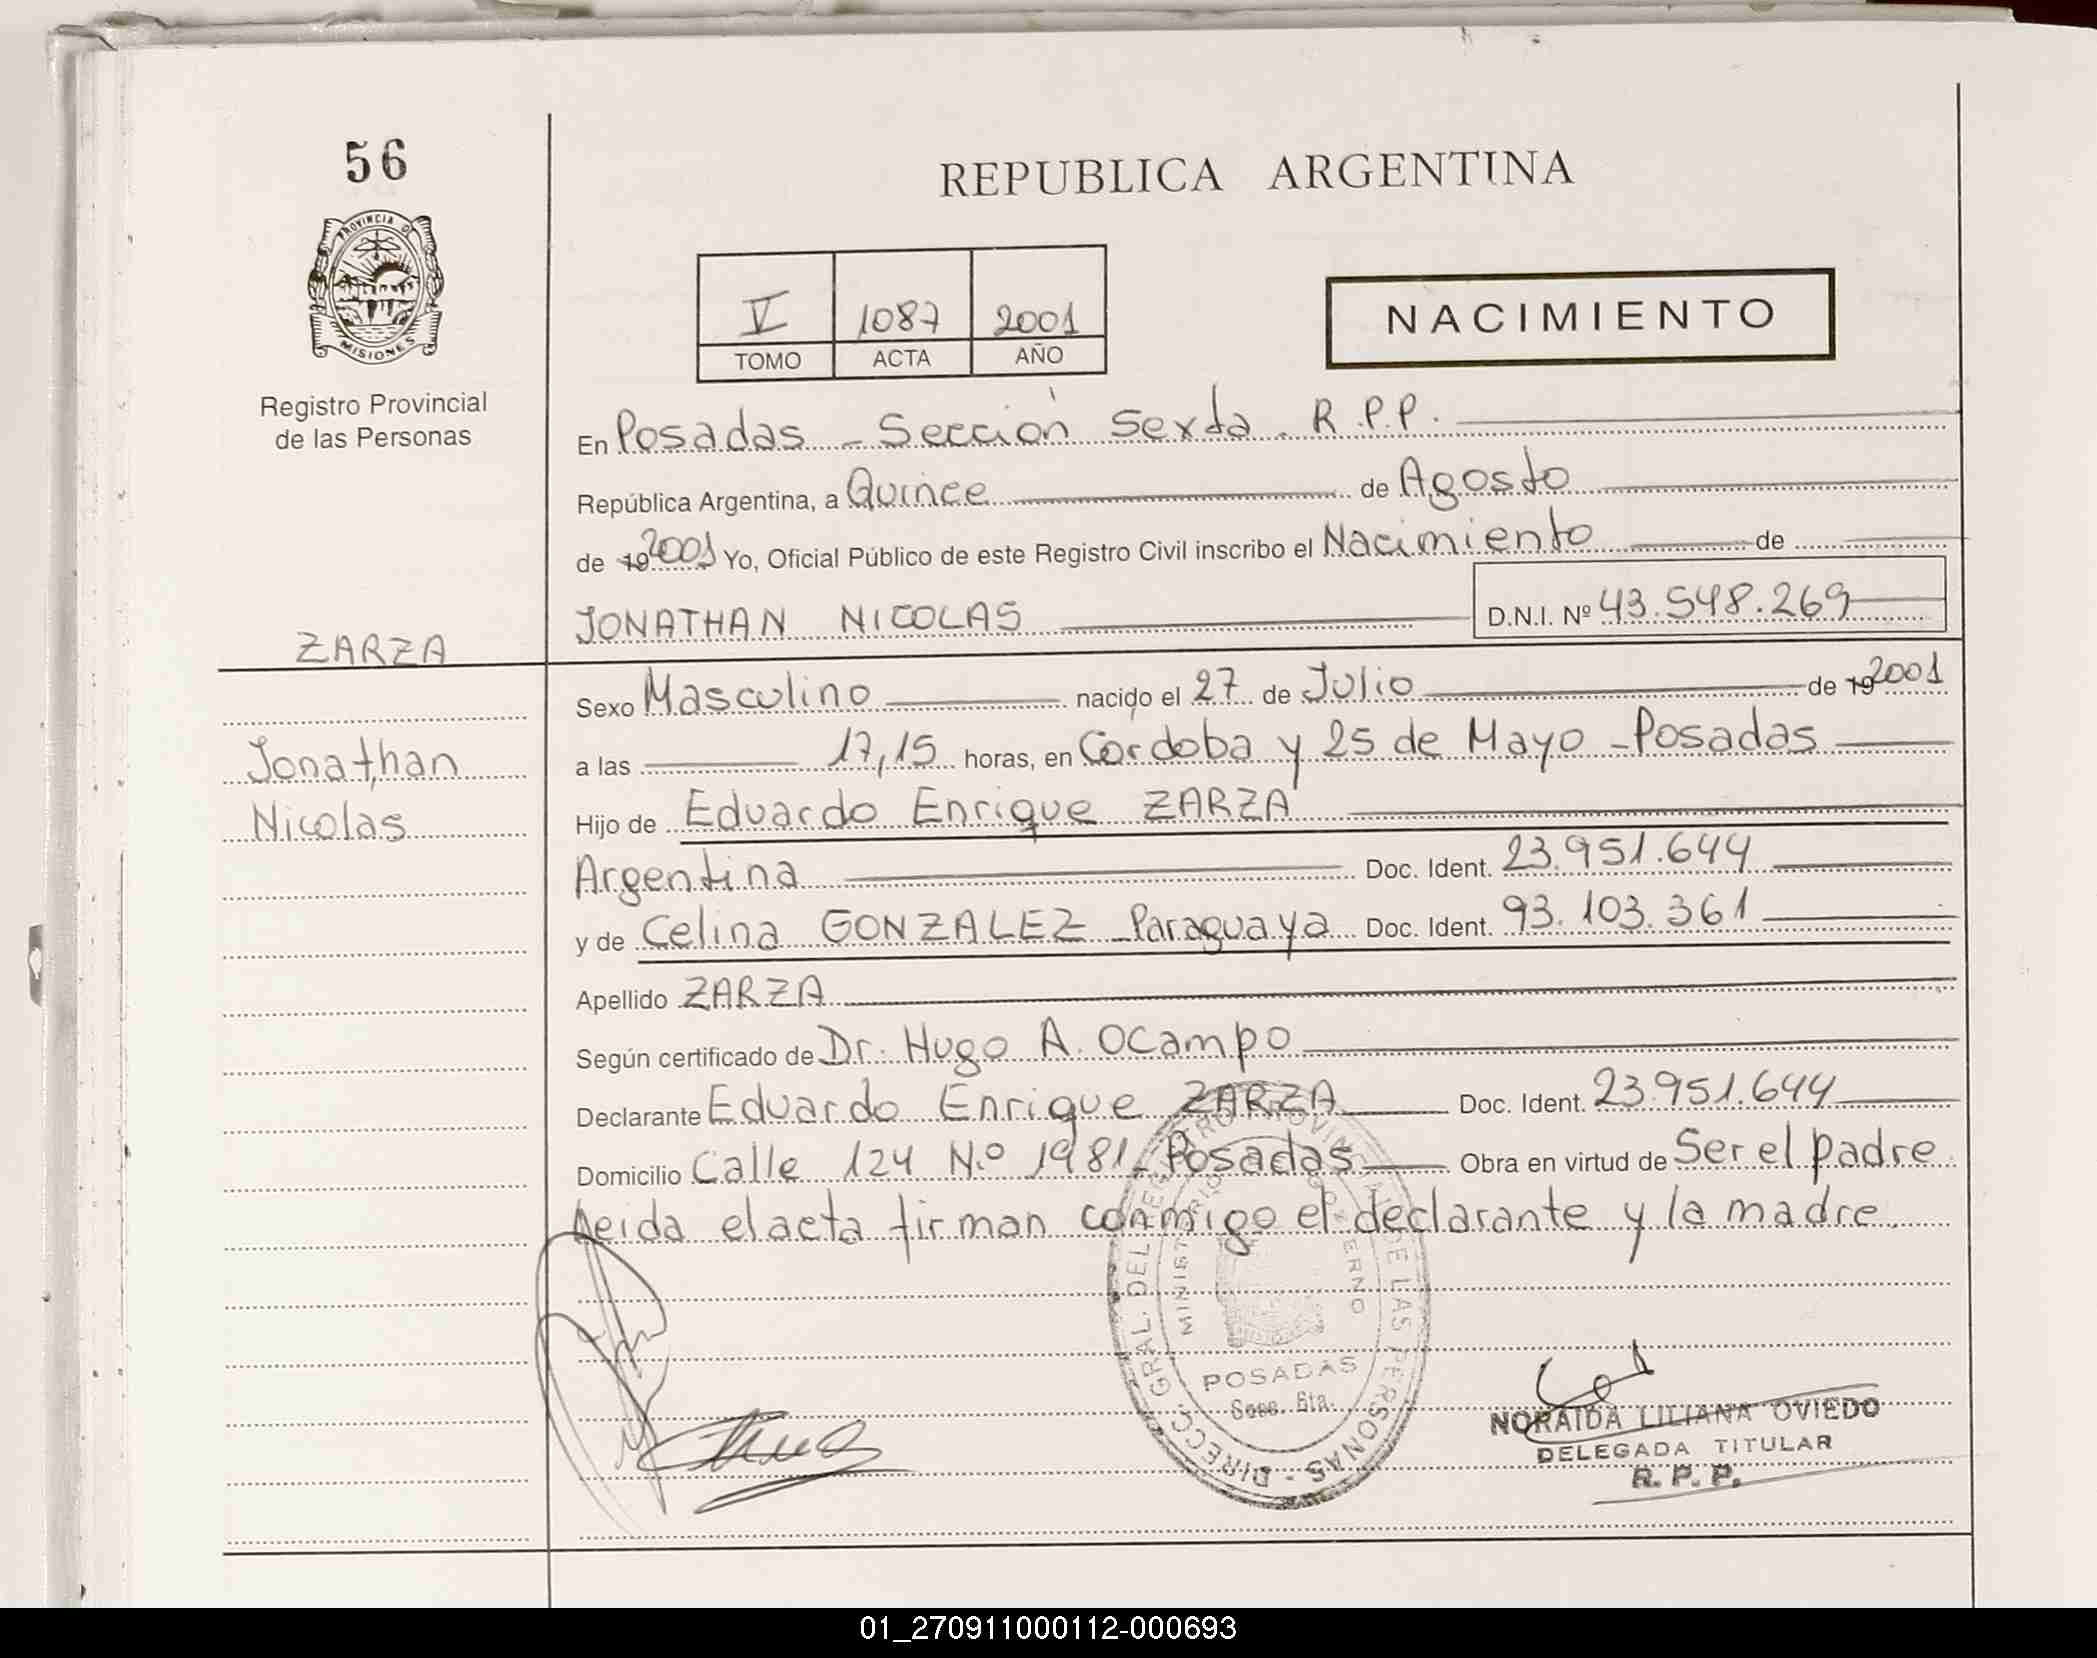 56
PROVINCIA DE
MISIONES
Registro Provincial
de las Personas
ZARZA
Jonathan
Nicolas
REPUBLICA ARGENTINA
V 1087 2001
TOMO ACTA AÑO
NACIMIENTO
En Posadas - Sección Sexta. R.P.P.
República Argentina, a Quince de Agosto
de 19 2001 Yo, Oficial Público de este Registro Civil inscribo el Nacimiento de
JONATHAN NICOLAS D.N.I. Nº 43.548.269
Sexo Masculino nacido el 27 de Julio de 19 2001
a las 17,15 horas, en Cordoba y 25 de Mayo - Posadas
Hijo de Eduardo Enrique ZARZA
Argentina Doc. Ident. 23.951.644
y de Celina GONZALEZ - Paraguaya Doc. Ident. 93.103.361
Apellido ZARZA
Según certificado de Dr. Hugo A. Ocampo
Declarante Eduardo Enrique ZARZA Doc. Ident. 23.951.644
Domicilio Calle 124 N.º 1981 - Posadas Obra en virtud de Ser el padre
Leida el acta firman conmigo el declarante y la madre.
DIRECC. GRAL. DEL REGISTRO PROVINCIAL DE LAS PERSONAS -
MINISTERIO GOBIERNO
POSADAS
Secc. 6ta.
NORAIDA LILIANA OVIEDO
DELEGADA TITULAR
R. P. P.
01_270911000112-000693